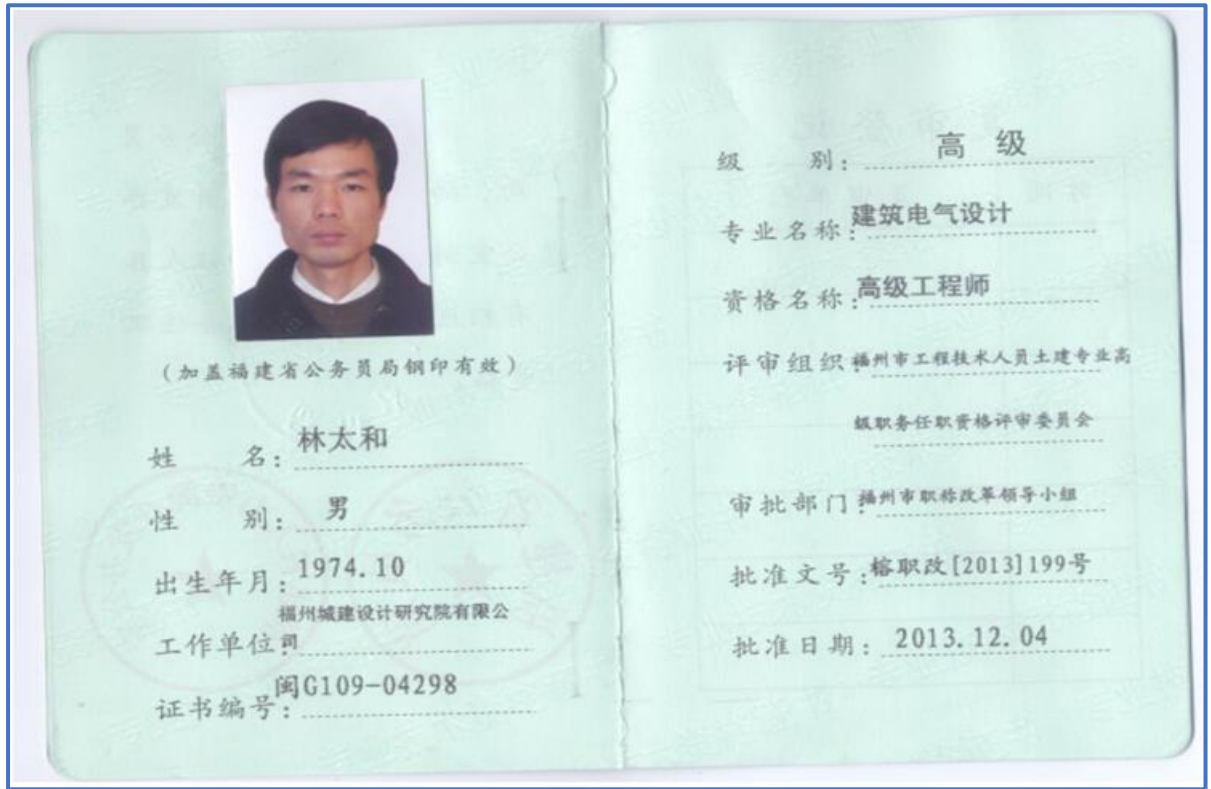 (加盖福建省公务员局钢印有效)
姓 名: 林太和
性 别: 男
出生年月: 1974.10
福州城建设计研究院有限公
工作单位: 司
证书编号: 闽G109-04298
级 别: 高 级
专业名称: 建筑电气设计
资格名称: 高级工程师
评审组织: 福州市工程技术人员土建专业高
级职务任职资格评审委员会
审批部门: 福州市职称改革领导小组
批准文号: 榕职改[2013]199号
批准日期: 2013.12.04